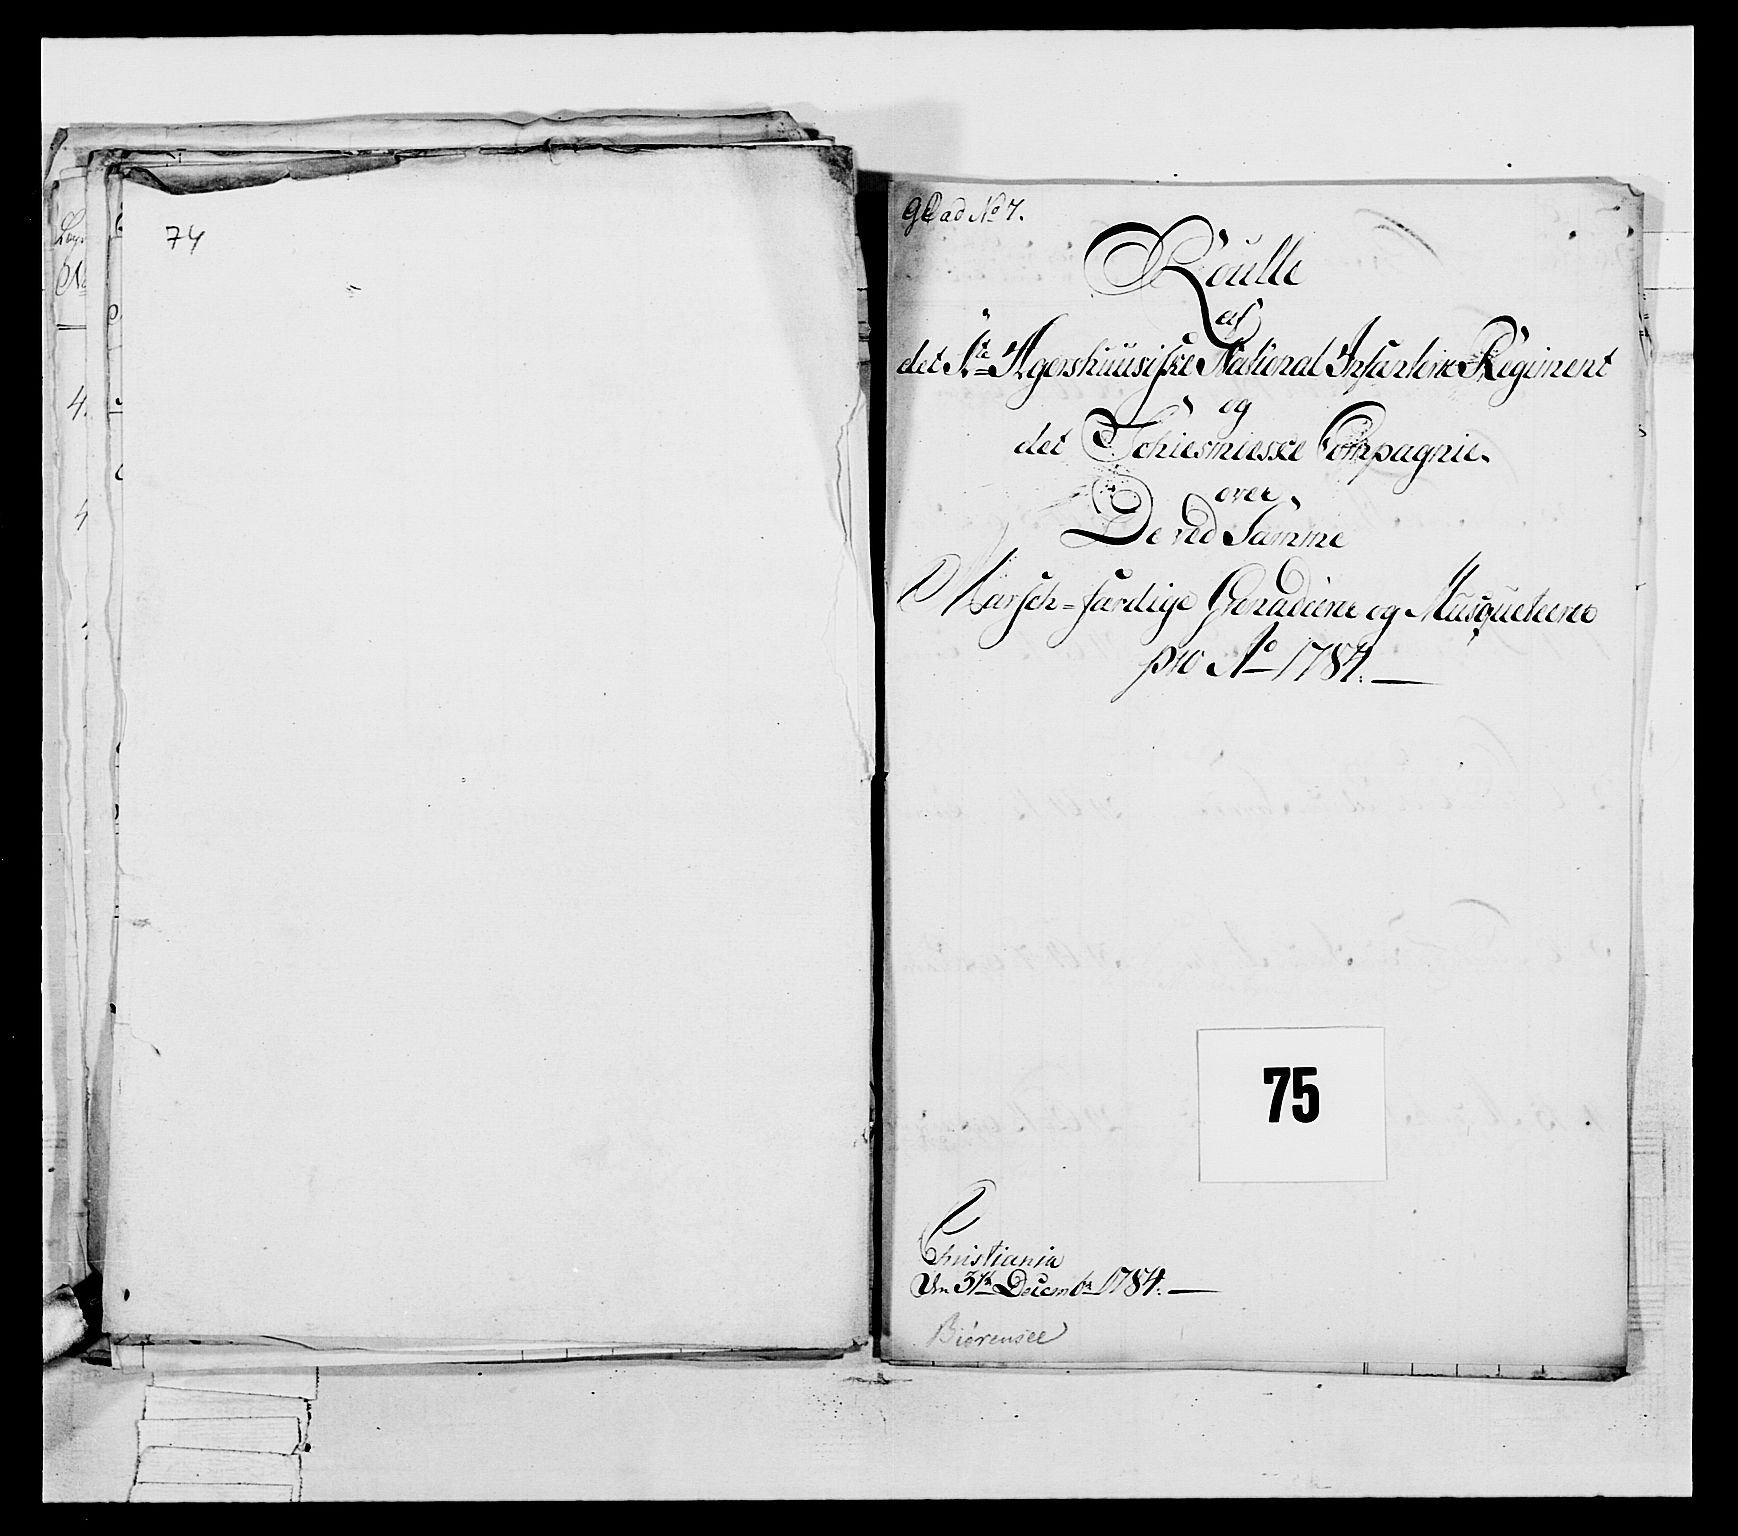 74
ad No 7.
Roulle
af
det 1ste Agershuusiske National Infanterie Regiment
og
det Schiesmieske Compagnie
over
De ved Samme
Marsch-færdige Grenaderer og Musqueteerer
pro Ao 1784.
75
Christiania
den 31te Decembr 1784.
Bierensee